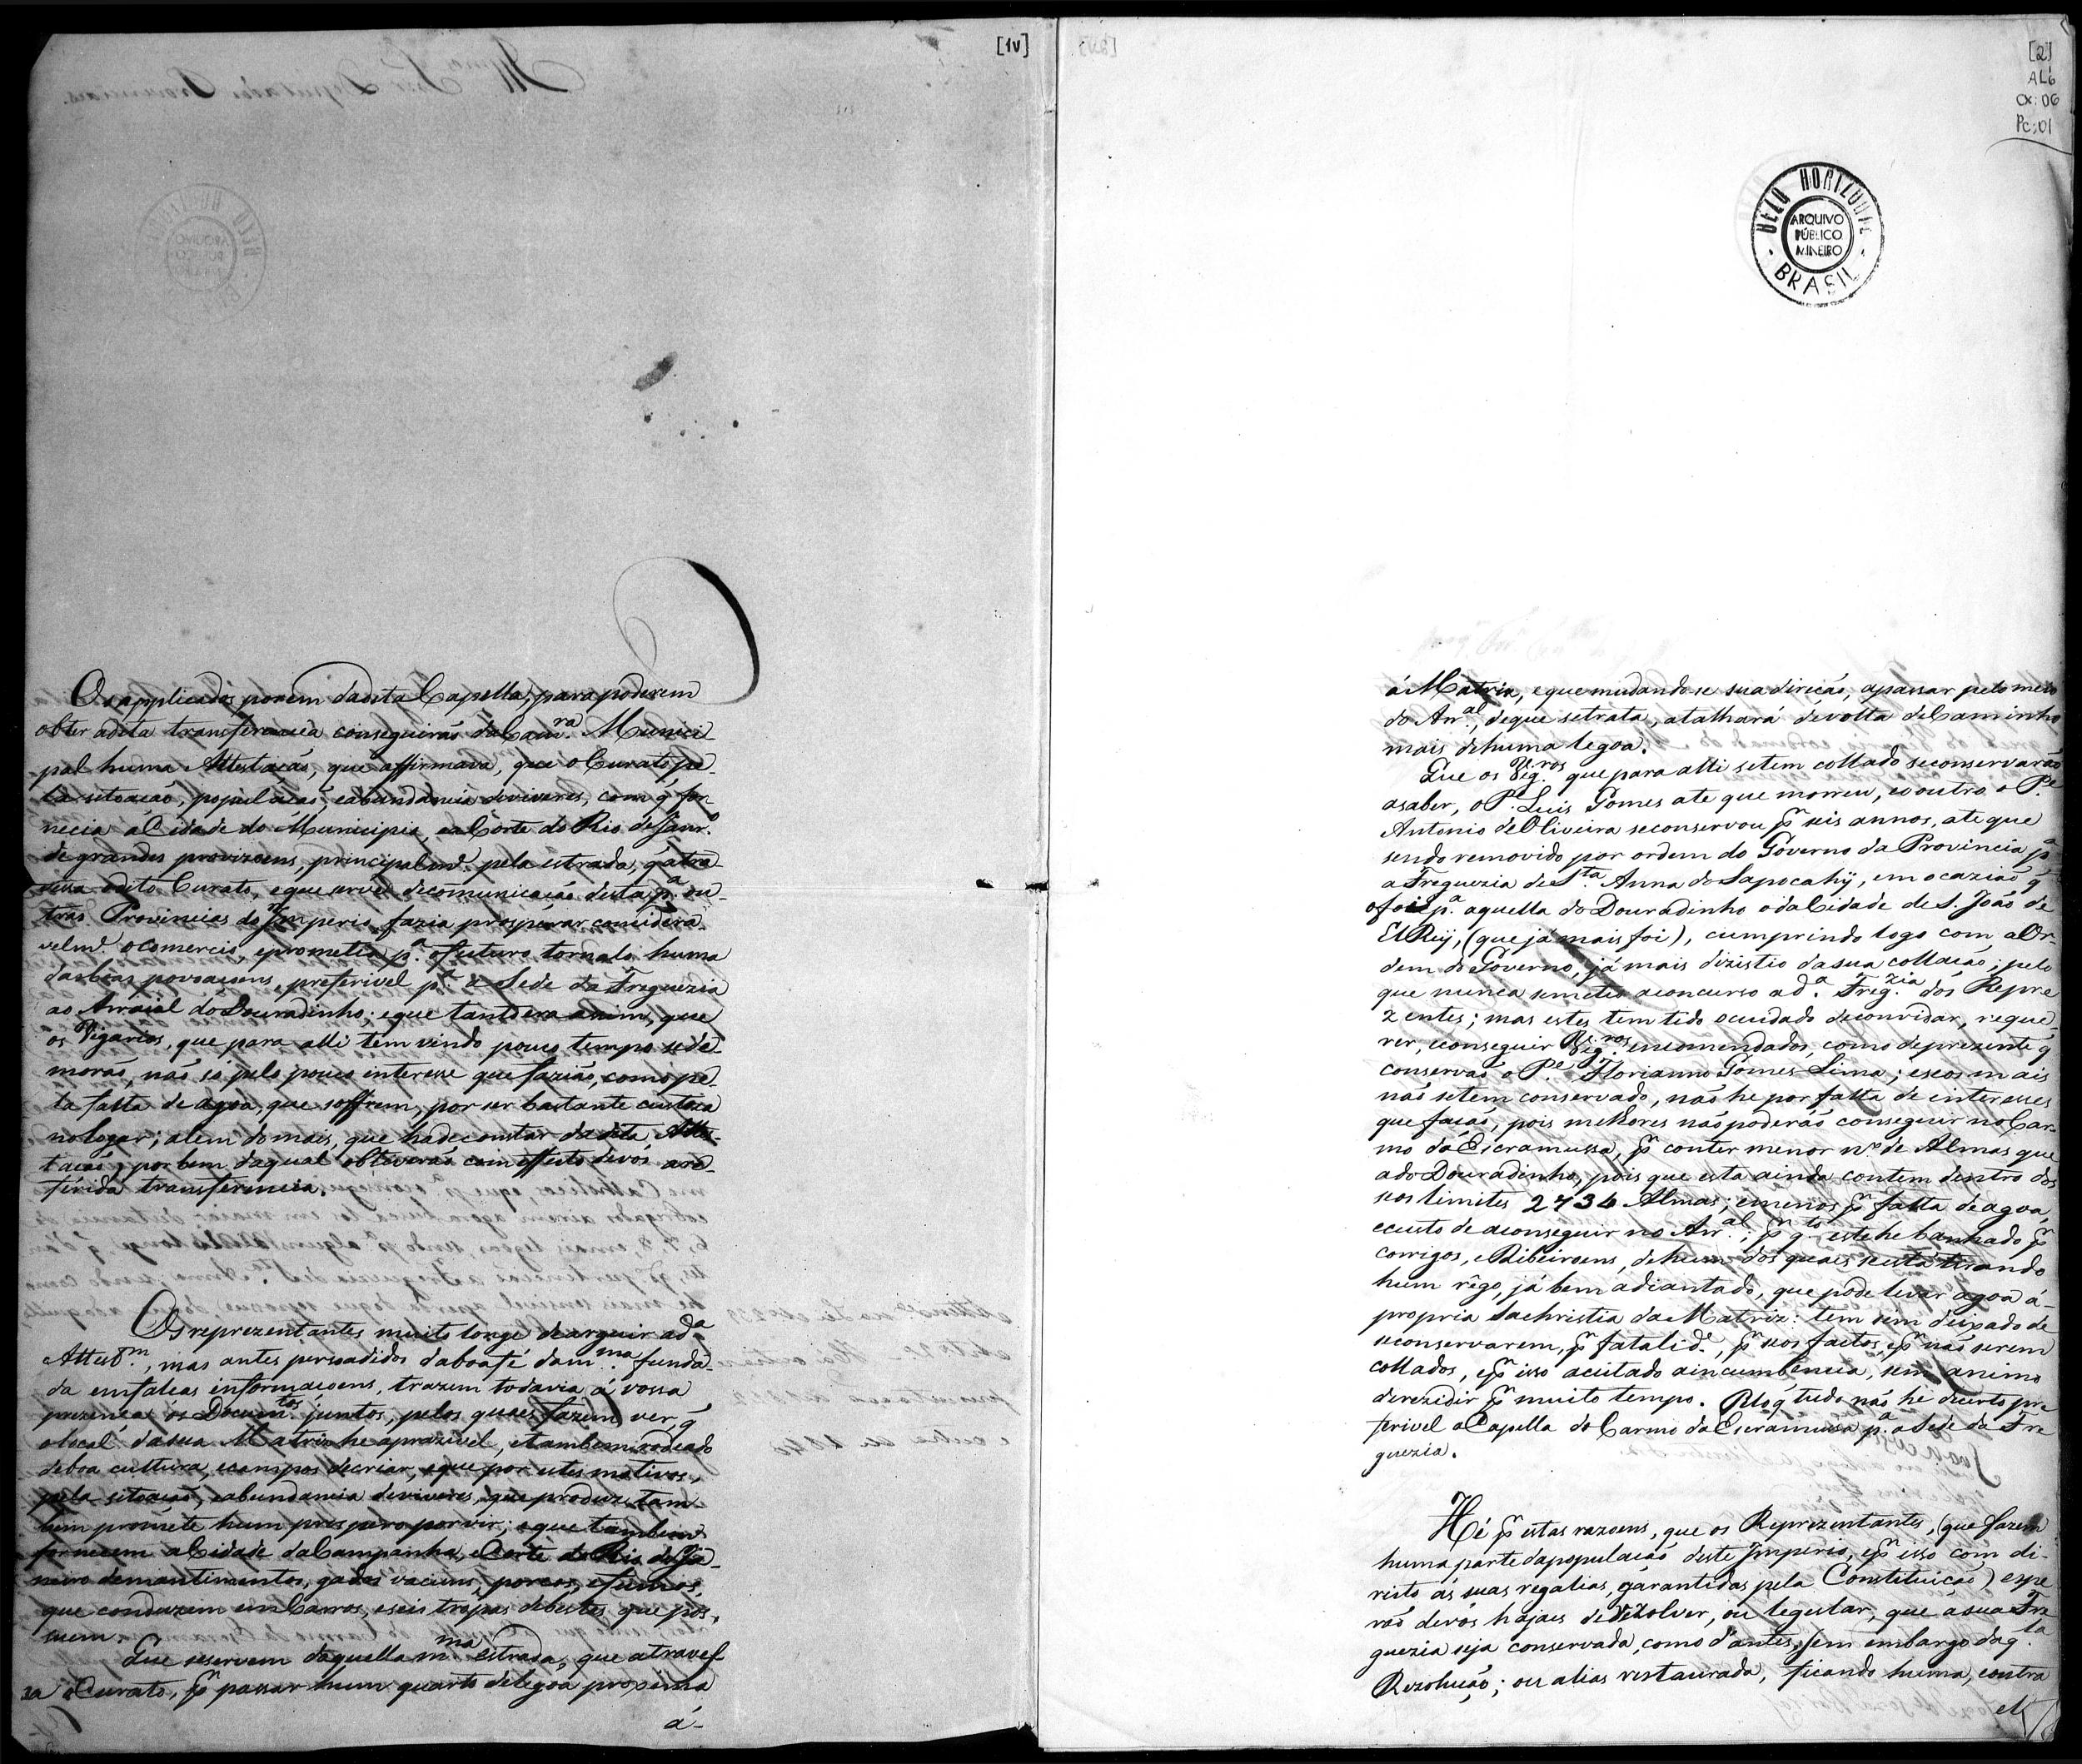 [1v]
Os applicados porem da dita Capella, para poderem
obter a dita transferencia conseguirão da Cam.ra Munici-
pal huma Attestação, que affirmava, que o Curato pe-
la situação, população, e abundancia de viveres, com q̃ for-
necia á Cidade do Municipio, e a Corte do Rio de Janr.o
de grandes provizoens, principalm.te pela estrada, q̃ atra-
vessa o dito Curato, e que serve de comunicação desta p.a ou-
tras Provincias do Imperio, fazia prosperar considera-
velm.te o comercio, e prometia p.a o futuro tornalo huma
das boas povoaçoens, preferivel p.a a Sede da Freguezia
ao Arraial do Douradinho; e que tanto era assim, que
os Vigarios, que para alli tem vindo pouco tempo se de-
morão, não só pelo pouco interesse que fazião, como pe-
la falta de agoa, que soffrem, por ser bastante custoza
no logar; alem do mais, que hade constar da dita Attes-
tação, por bem da qual obtiverão com effeito de vós a re-
ferida transferencia.
Os reprezentantes muito longe de arguir a d.a
Attest.m, mas antes persoadidos da boa fé da m.ma funda-
da em falças informaçoens, trazem todavia á vossa
prezença os Docum.tos juntos, pelos quaes fazem ver, q̃
o local da sua Matriz he aprazivel, e tambem rodeado
de boa cultura, e campos de criar, e que por estes motivos,
pela situação, e abundancia de viveres, que produz tam-
bem prométe hum prospero porvir; e que tambem
fornecem a Cidade da Campanha, e Corte do Rio de Ja-
neiro de mantimentos, gados vacuns, porcos, e fumos,
que conduzem em Carros, e seis tropas de bestas que pos-
suem.
Que se servem daquella m.ma estrada, que atraves-
sa o Curato, p.r passar hum quarto de legoa proxima
á-
[2]
AL6
CX: 06
Pc: 01
BELO HORIZONTE
ARQUIVO
PÚBLICO
MINEIRO
- BRASIL -
á Matriz, e que mudando se sua direção, a passar pelo meio
do Arr.al, de que se trata, atalhará de volta de Caminho
mais de huma legoa.
Que os Vig.ros que para alli se tem collado se conservarão
a saber, o P.e Luis Gomes ate que morreu, e o outro o P.e
Antonio de Oliveira se conservou p.r seis annos, ate que
sendo removido por ordem do Governo da Provincia p.a
a Freguezia de S.ta Anna do Sapocahy, em ocazião q̃
o foi p.a aquella do Douradinho o da Cidade de S. João de
El Rey, (que já mais foi), cumprindo logo com a Or-
dem do Governo, já mais dizistio da sua collação; pelo
que nunca se meteo a concurso a d.a Freg.zia dos Repre
zentes; mas estes tem tido o cuidado de convidar, reque-
rer, e conseguir Vig.ros encomendados, como de prezente q̃
conservão o P.e Florianno Gomes Lima; e se os mais
não se tem conservado, não he por falta de interesses
que fação, pois melhores não poderão conseguir no Car-
mo da Escramussa, p.r conter menor n.o de Almas que
a do Douradinho, pois que esta ainda contem dentro dos
seos limites 2434 Almas; e menos p.r falta de agoa,
e custo de a conseguir no Arr.al; p.r q.to este he banhado p.r
corrigos, e Ribeiroens, de hum dos quaes se está tirando
hum rêgo, já bem adiantado, que póde levar agoa á-
propria Sachristia da Matriz: tem sim deixado de
se conservarem, p.r fatalid.e, p.r seos factos, e p.r não serem
collados, e p.r isso aceitado a incumbencia, sem animo
de rezidir p.r muito tempo. Pelo q̃ tudo não he de certo pre
ferivel a Capella do Carmo da Escramussa p.a a Sede da Fre
guezia.
Hé p.r estas razoens, que os Reprezentantes, (que fazem
huma parte da população deste Imperio, e p.r isso com di-
reito ás suas regalias, garantidas pela Constituição) espe
rão de vós hajaes de rezolver, ou legislar, que a sua Fre
guezia seja conservada, como d'antes, sem embargo daq.la
Rezolução; ou alias restaurada, ficando huma, e outra